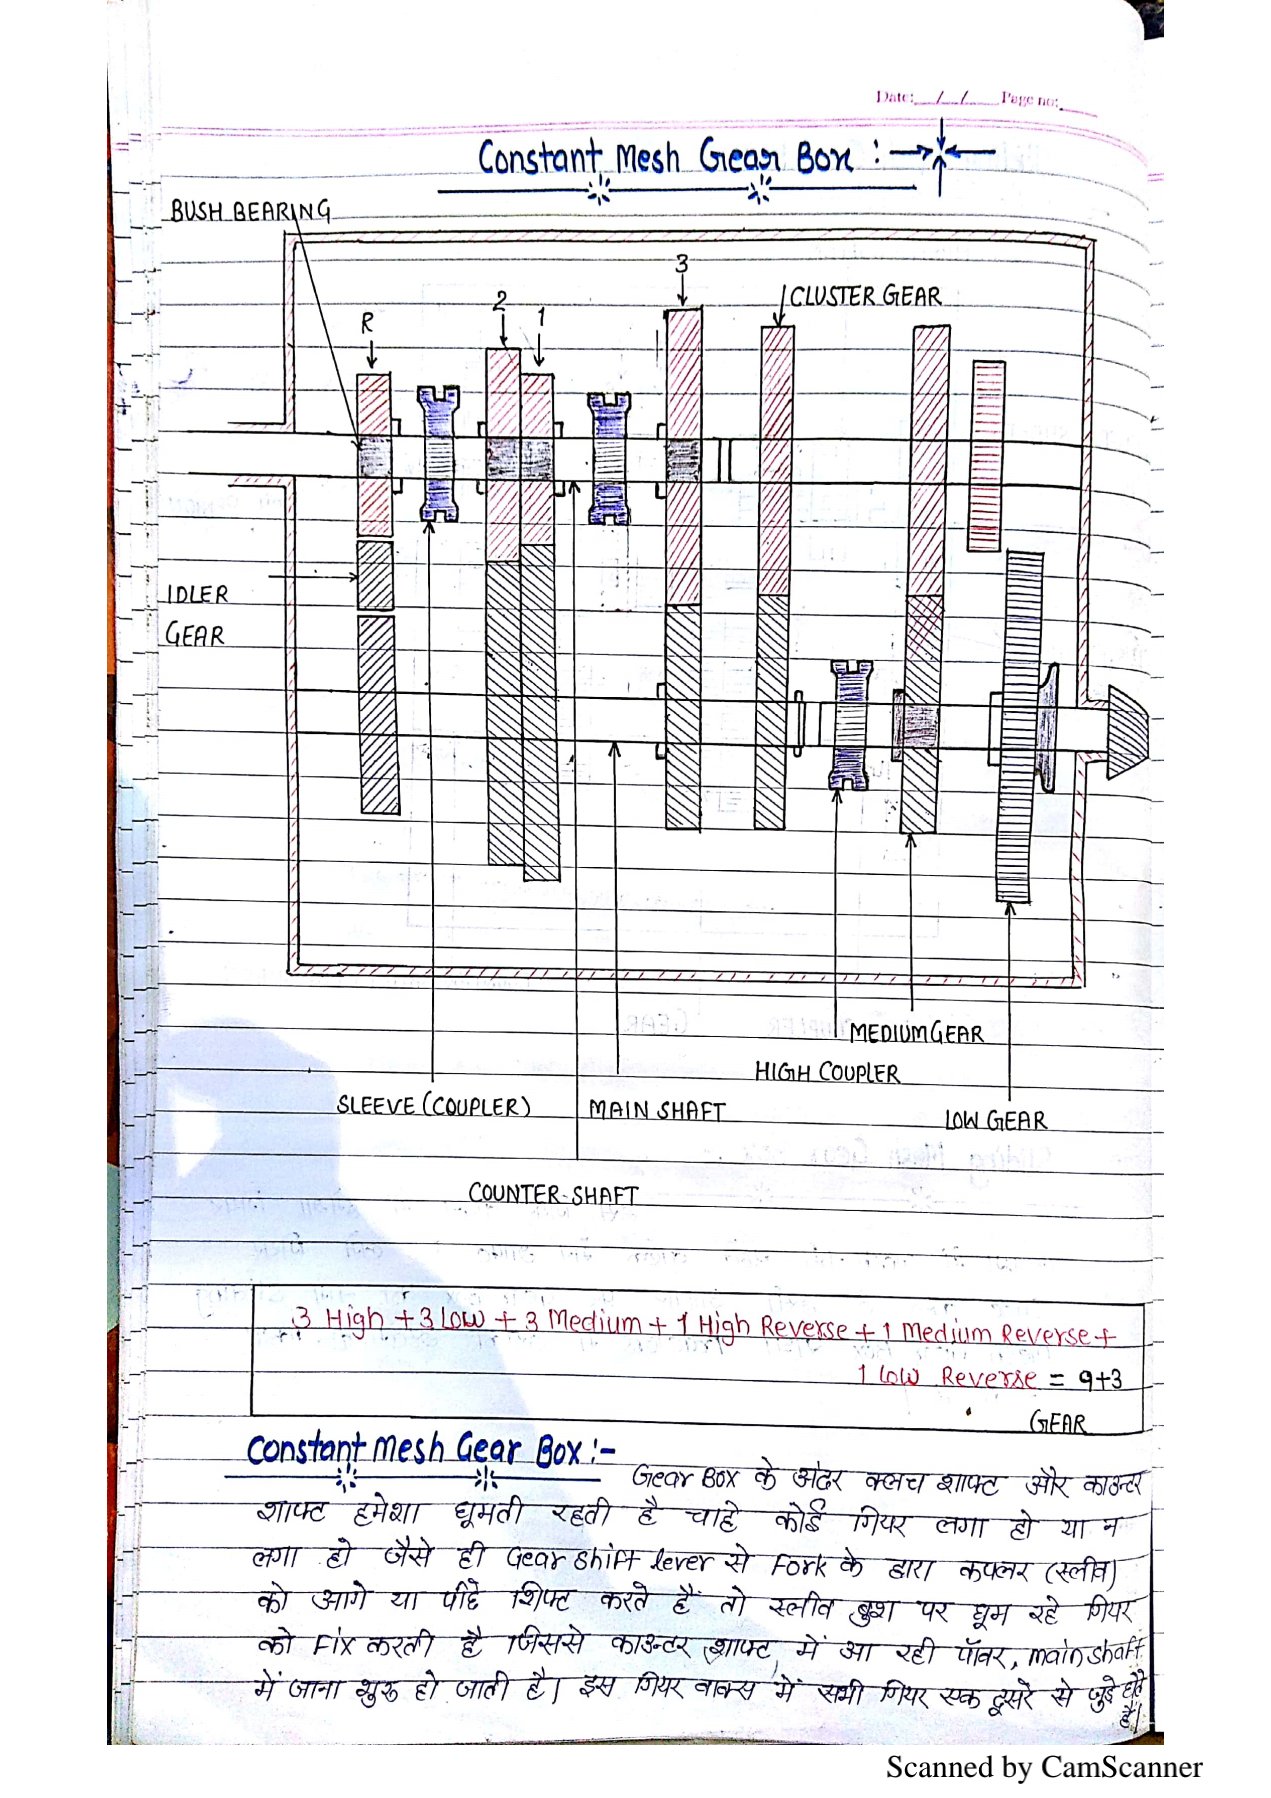 Date: / / Page no:
Constant Mesh Gear Box :
BUSH BEARING
3
CLUSTER GEAR
2
1
R
IDLER
GEAR
MEDIUM GEAR
HIGH COUPLER
SLEEVE (COUPLER)
MAIN SHAFT
LOW GEAR
COUNTER SHAFT
3 High + 3 Low + 3 Medium + 1 High Reverse + 1 Medium Reverse +
1 Low Reverse = 9+3
GEAR
Constant Mesh Gear Box :-
Gear Box के अंदर क्लच शाफ्ट और काउन्टर
शाफ्ट हमेशा घूमती रहती है चाहे कोई गियर लगा हो या न
लगा हो जैसे ही Gear shift lever से Fork के द्वारा कपलर (स्लीव)
को आगे या पीछे शिफ्ट करते हैं तो स्लीव बुश पर घूम रहे गियर
को Fix करती है जिससे काउन्टर शाफ्ट में आ रही पॉवर, main shaft
में जाना शुरू हो जाती है। इस गियर वाक्स में सभी गियर एक दूसरे से जुड़े होते
है।
Scanned by CamScanner